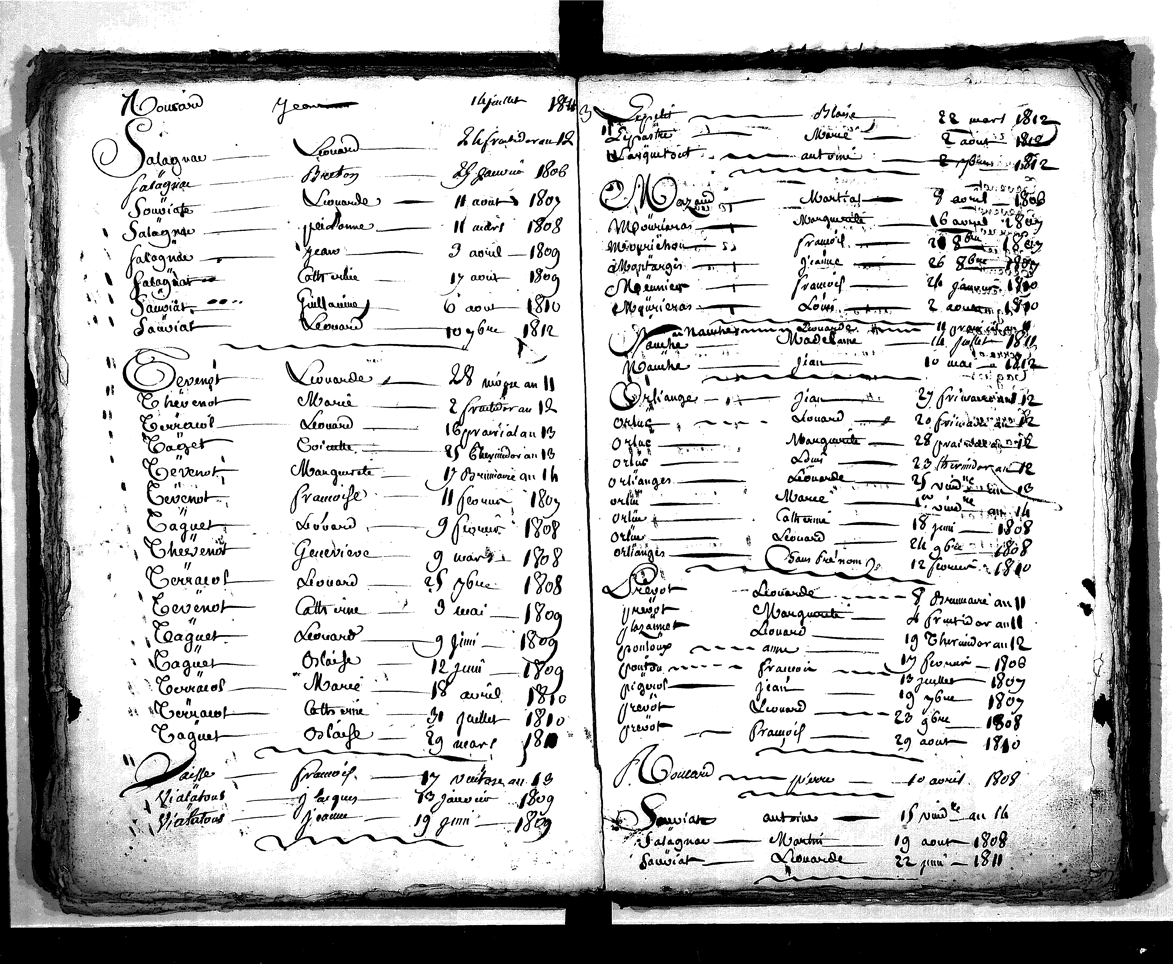 Jean 14 juillet 1813
Salagnac Léonard 24 fructidor an 12
Salagnac 29 janvier 1806
Sauviat Léonarde 11 août 1807
Salagnac peironne 11 mars 1808
Salagnac jean 3 avril 1809
Salagnac Catherine 17 août 1809
Sauviat Guillaume 6 août 1810
Sauviat Léonard 10 9bre 1812
Tevenot Léonarde 28 an 11
Thevenot Marie 2 fructidor an 12
Terracol Léonard 16 prairial an 13
Taget 25 thermidor an 13
Tevenot Marguerite 17 Brumaire an 14
Tevenot françoise 11 fevrier 1807
Taguet Léonard 9 fevrier 1808
Thevenot Genevieve 9 mars 1808
Terracol Léonard 25 7bre 1808
Tevenot Catherine 3 mai 1809
Taguet Léonard 9 juin 1809
Taguet Blaise 12 juin 1809
Terracol Marie 18 avril 1810
Terracol Catherine 31 juillet 1810
Taguet Blaise 29 mars 1811
françois 17 ventose an 13
Vialatous jacques 13 janvier 1809
Vialatous jeanne 19 juin 1809
Blaise 22 mars 1812
Marie 2 août 1812
antoine 1812
Mazaud Martial 8 avril 1806
Mourieras Marguerite 16 avril 1807
françois 8bre 1807
Montargis jeanne 26 8bre 1807
Meunier françois 24 janvier 1810
Mourieras Louis 2 août 1810
Nauche Léonarde 11 prairial an 11
Nauche Madelaine 14 juillet 1811
Nauche jean 10 mai 1812
Orliange jean 27 frimaire an 12
Orluc Léonard 20 an 12
Orluc Marguerite 28 an 12
Orluc Louis 23 thermidor an 12
orlianges Léonarde 25 vind.re an 13
orluc Marie vind.re an 14
orluc Catherine 18 juin 1808
orluc Léonard 24 9bre 1808
orlianges (sans prénom) 12 fevrier 1810
Prevot Léonarde 8 Brumaire an 11
prevot Marguerite 4 fructidor an 11
Léonard 19 Thermidor an 12
pouloux anne 17 fevrier 1806
françois 13 juillet 1807
jean 19 7bre 1807
prevot Léonard 23 9bre 1808
prevot François 29 août 1810
pierre 10 avril 1808
Sauviat antoine 15 vind.re an 14
Salagnac Martin 19 août 1808
Sauviat Léonarde 22 juin 1811